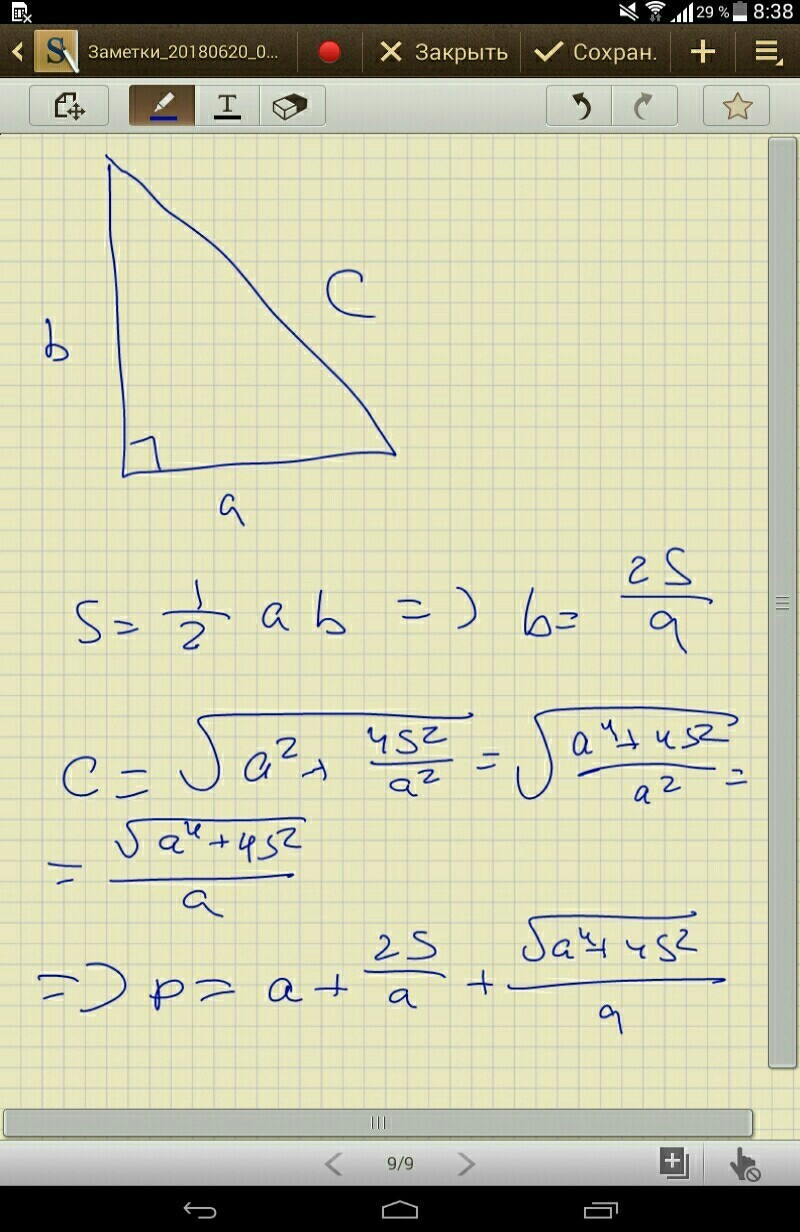 29 % 8:38
Заметки_20180620_0... Закрыть Сохран.
T
C
b
a
S = 1/2 a b => b = 2S/a
C = √(a² + 4S²/a²) = √((a⁴ + 4S²)/a²) =
= √(a⁴ + 4S²)/a
=> p = a + 2S/a + √(a⁴ + 4S²)/a
9/9